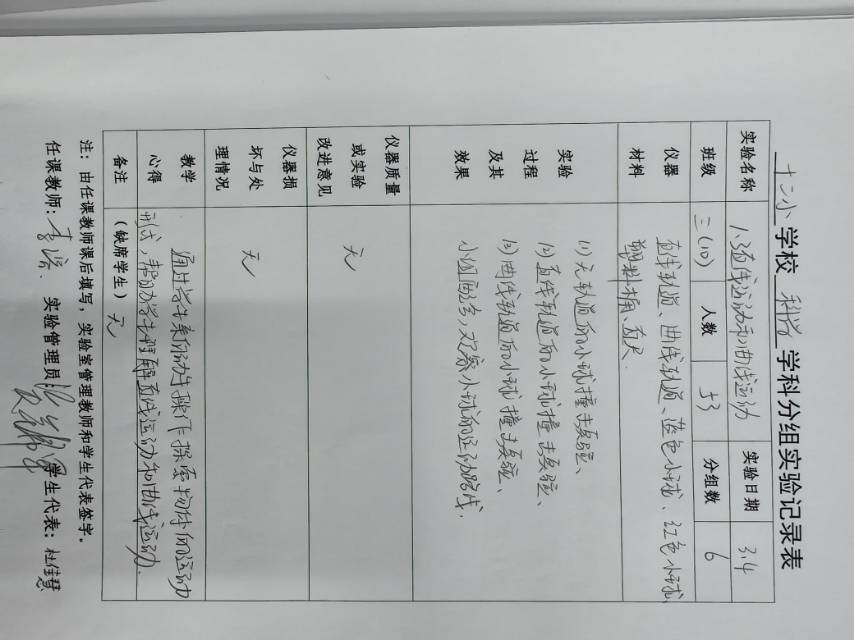 十二小 学校 科学 学科分组实验记录表
实验名称 1.3直线运动和曲线运动 实验日期 3.4
班级 三(10) 人数 53 分组数 6
仪器 材料 直线轨道、曲线轨道、蓝色小球、红色小球、
塑料桶、直尺
实验 过程 及其 效果 (1)无轨道的小球撞击实验、
(2)直线轨道的小球撞击实验、
(3)曲线轨道的小球撞击实验、
小组配合,观察小球的运动路线.
仪器质量 或实验 改进意见 无
仪器损 坏与处 理情况 无
教学 心得 通过学生亲自动手操作 探索物体的运动
形式,帮助学生理解直线运动和曲线运动.
备注 (缺席学生) 无
注:由任课教师课后填写,实验室管理教师和学生代表签字。
任课教师: 实验管理员: 学生代表:杜佳慧